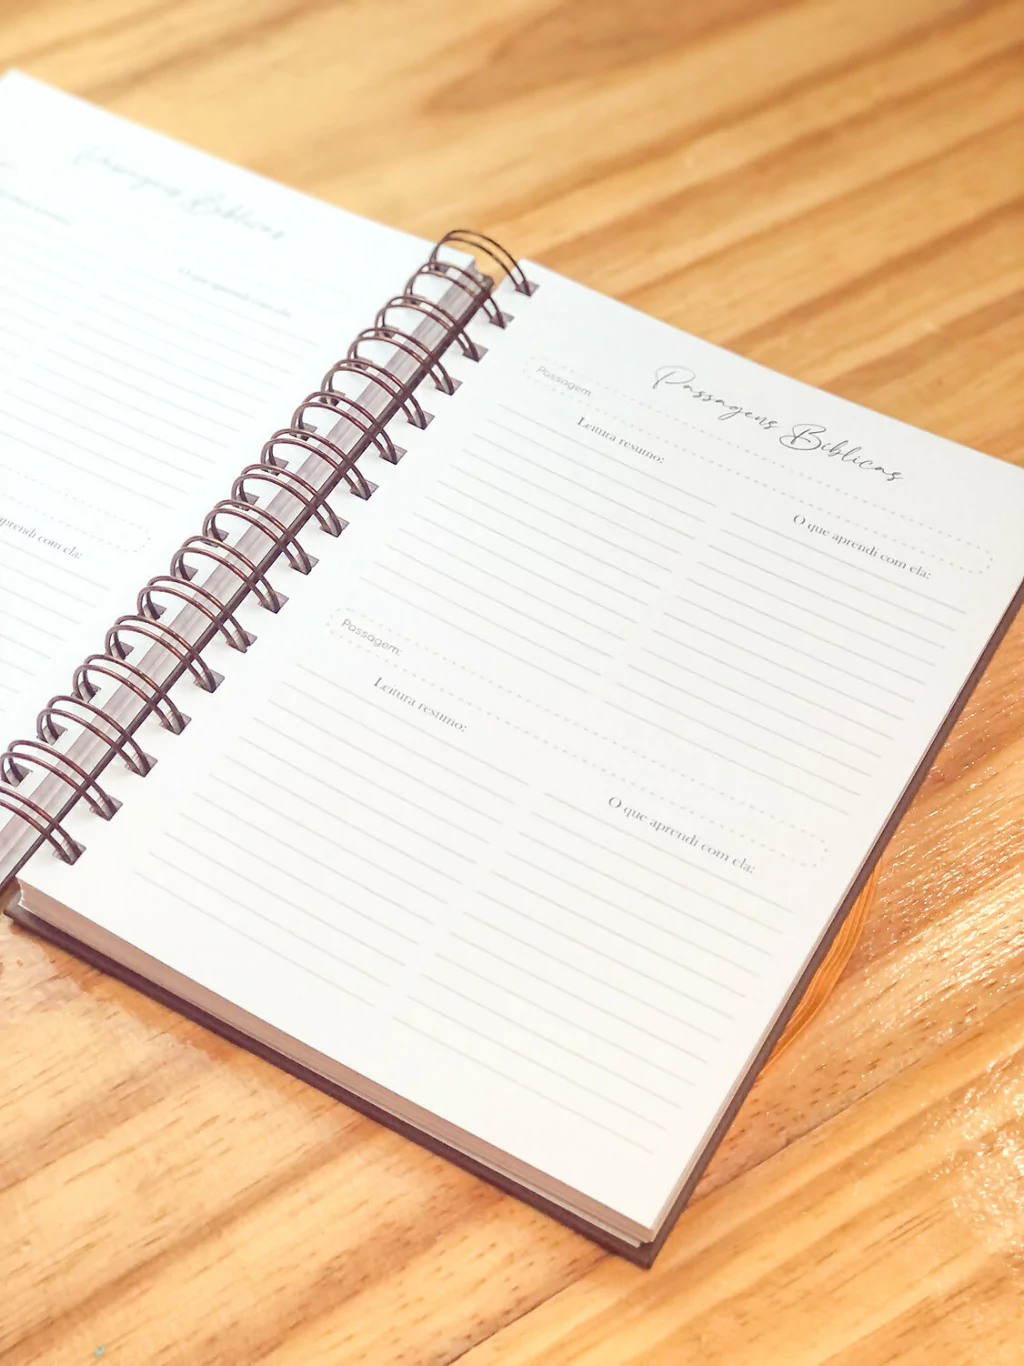 Passagens Bíblicas
O que aprendi com ela:
aprendi com ela:
Passagens Bíblicas
Passagem:
Leitura resumo:
O que aprendi com ela:
Passagem:
Leitura resumo:
O que aprendi com ela: